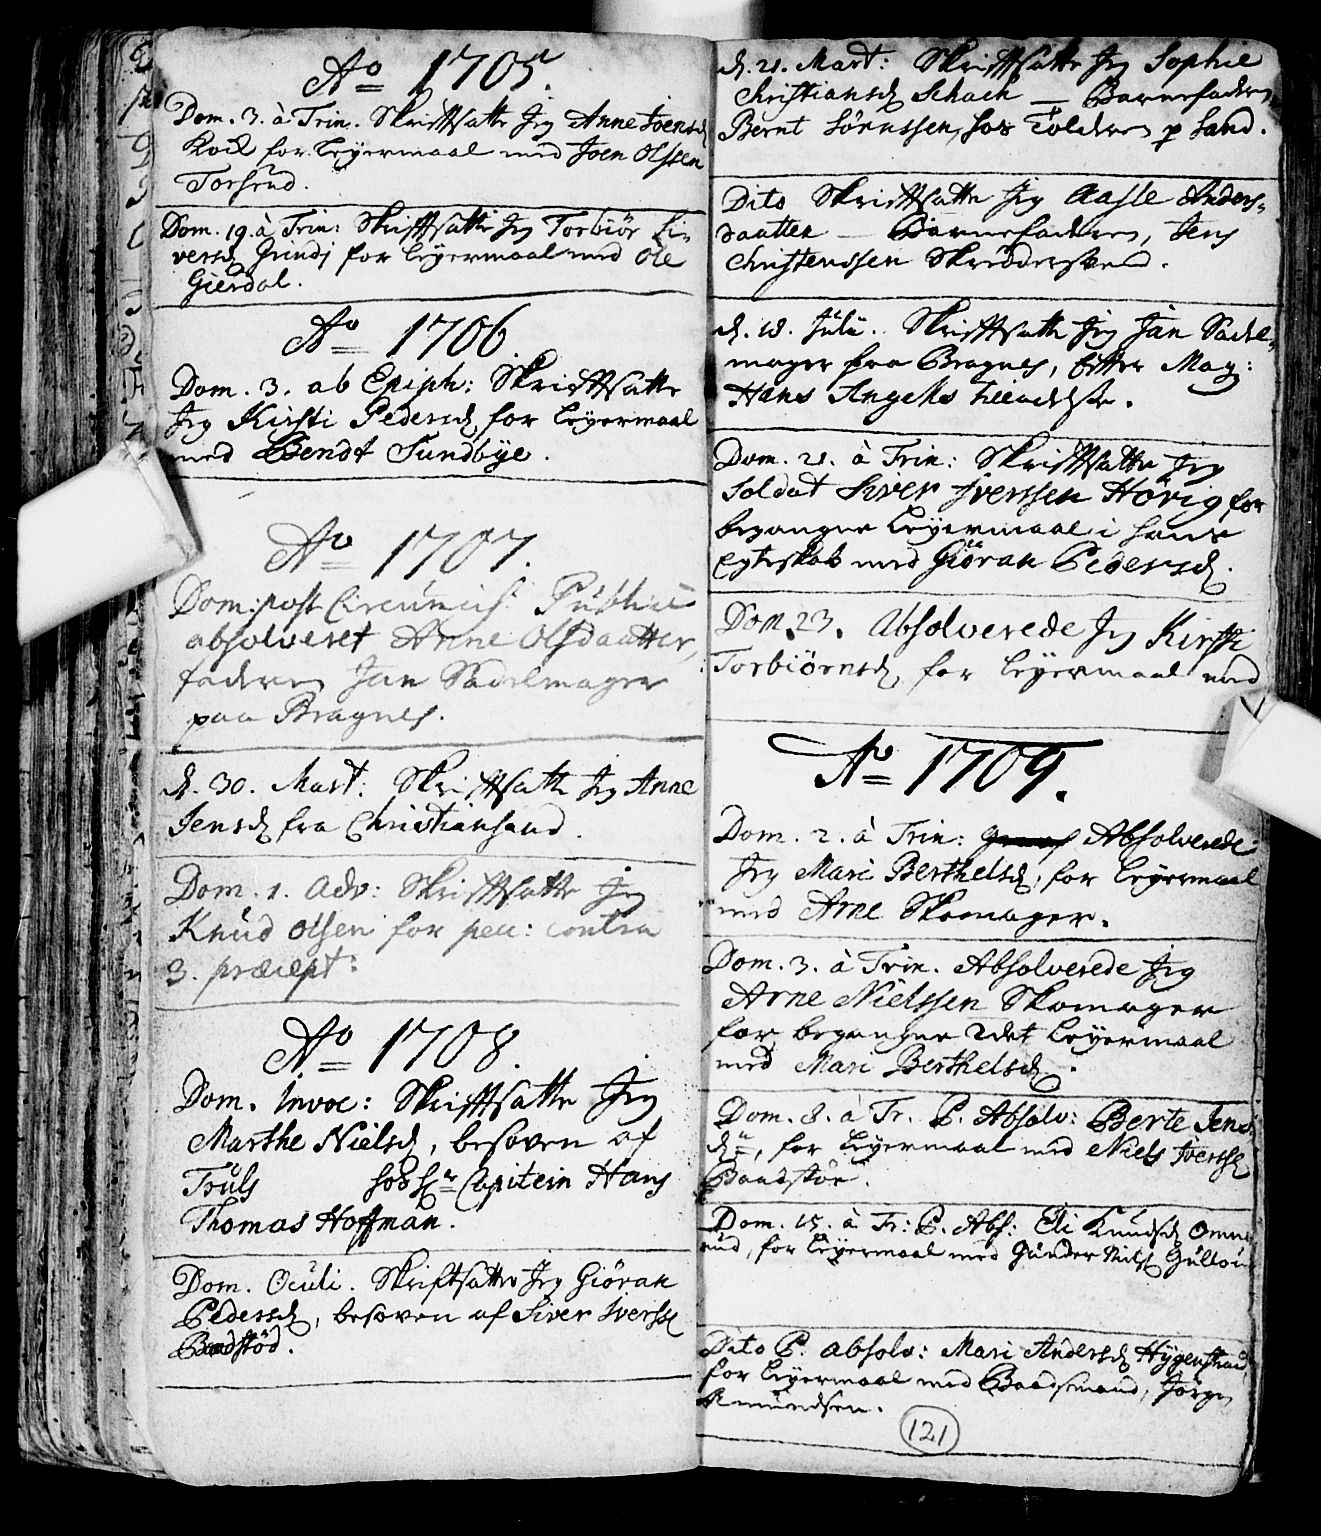 Ao 1705.
Dom. 3. à Trin. Skrifftsatte Jeg Anne Joensd
Kock for leyermaal med Joen Olssen
Torsrud.
Dom. 19. à Trin: Skrifftsatte Jeg Torbiør Ei-
versd Grindj for leyermaal med Ole
Gierdal.
Ao 1706.
Dom. 3. ab Epiph: Skrifftsatte
Jeg Kirsti Pedersd, for leyermaal
med Bendt Sundbye.
Ao 1707.
Dom: post Circumcis: Publice
absolveret Anne Olsdaatter,
faderen Jan Sadelmager
paa Bragnes.
d. 30. Mart: Skrifftsatte Jeg Anne
Jensd fra Christiansand.
Dom. 1. Adv: Skrifftsatte Jeg
Knud Olsen for pecc: contra
3. præcept:
Ao 1708.
Dom. Invoc: Skrifftsatte Jeg
Marthe Nielsd, besoven af
Truls hos Capitein Hans
Thomas Hoffman.
Dom. Oculi. Skriftsatte Jeg Giøran
Pedersd, besoven af Siver Iverss
Baadstød.
d. 21. Mart: Skrifftsatte Jeg Sophie
Christiansd Schach — Barnefaderen
Bernt Sørnssen, hos Tolderen p Sand.
Dito Skrifftsatte Jeg Aasle Anders-
daatter — Barnefaderen, Jens
Christenssen Skredderswend.
d. 18. Julii. Skrifftsatte Jeg Jan Sadel-
mager fraa Bragnes, effter Mag:
Hans Angells tilladelse.
Dom. 21. à Trin: Skrifftsatte Jeg
Soldat Siver Iverssen Hørig for
begangne leyermaal i hans
Egteskab med Giøran Pedersd.
Dom. 23. Absolverede Jeg Kirsti
Torbiørnsd, for leyermaal med
Ao 1709.
Dom. 2. à Trin: Absolverede
Jeg Mari Berthelsd, for leyermaal
med Arne Skomager.
Dom. 3. à Trin. Absolverede Jeg
Arne Nielssen Skomager
for begangne 2det Leyermaal
med Mari Berthelsd.
Dom. 8. à Tr. P. Absolv: Berte Jens
d, for leyermaal med Niels Iverss
Baadstøe.
Dom. 15. à Tr: P. Abs: Eli Knudsd Omne
rud, for leyermaal med Gunder Nilss Gulløu
Dito P. absolv: Mari Andersd Hygenstrand
for leyermaal med Baadsmand, Jørgen
Amundsen.
121